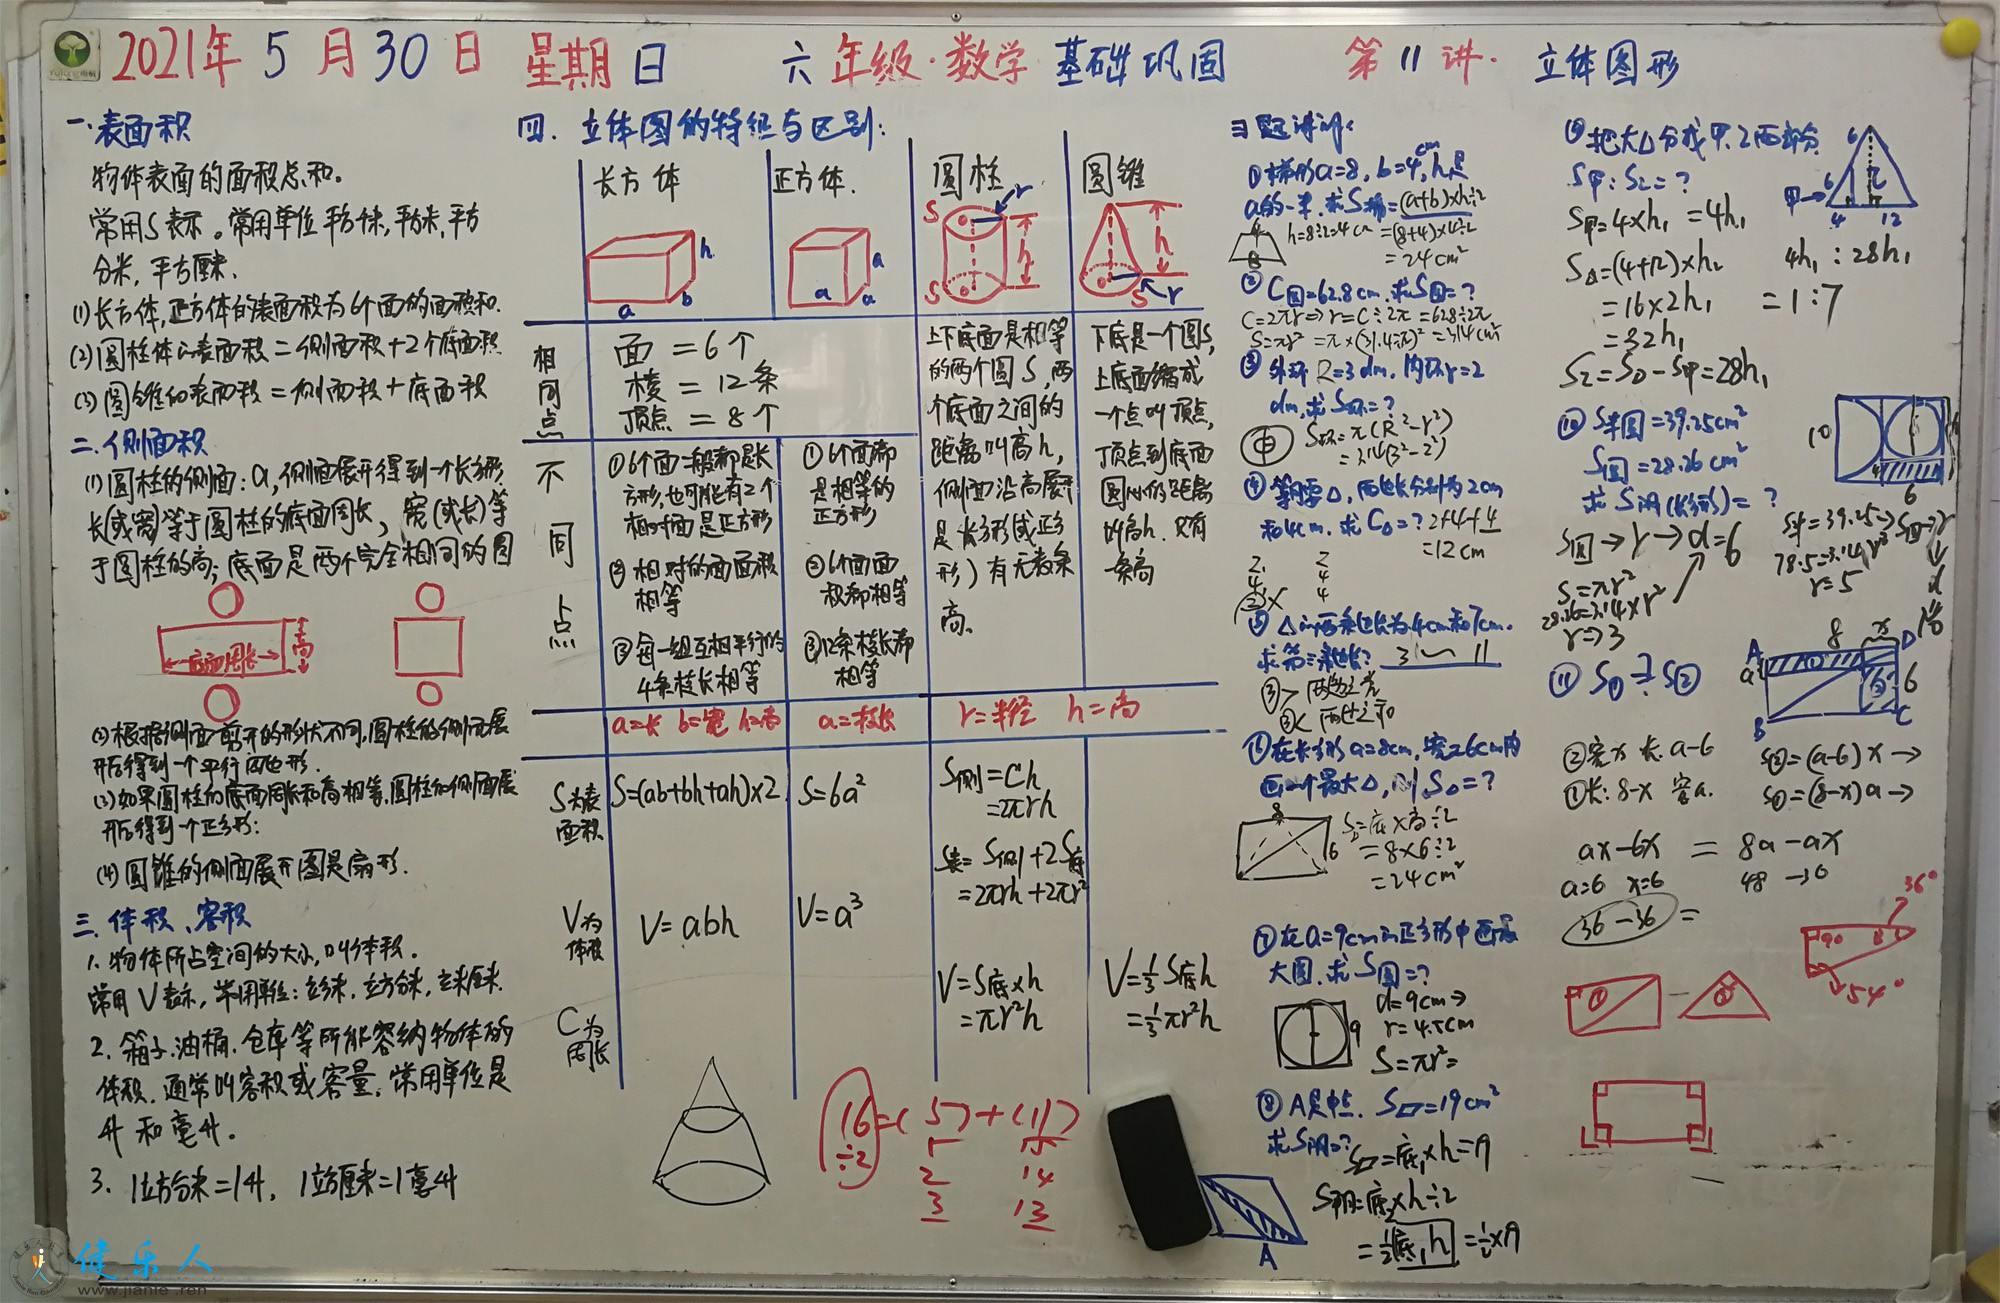 2021年5月30日 星期日 六年级·数学 基础巩固 第11讲· 立体图形
一.表面积
物体表面的面积总和。
常用S表示。常用单位平方千米,平方米,平方
分米,平方厘米.
(1)长方体,正方体的表面积为6个面的面积和.
(2)圆柱体的表面积=侧面积+2个底面积
(3)圆锥的表面积=侧面积+底面积
二.侧面积
(1)圆柱的侧面:a,侧面展开得到一个长方形,
长(或宽)等于圆柱的底面周长,宽(或长)等
于圆柱的高;底面是两个完全相同的圆
底面周长
高
(2)根据侧面剪开的形状不同,圆柱的侧面展
开后得到一个平行四边形.
(3)如果圆柱的底面周长和高相等,圆柱的侧面展
开后得到一个正方形:
(4)圆锥的侧面展开图是扇形.
三.体积、容积
1.物体所占空间的大小,叫体积.
常用V表示,常用单位:立方米,立方分米,立方厘米.
2.箱子.油桶.仓库等所能容纳物体的
体积.通常叫容积或容量;常用单位是
升和毫升.
3. 1立方分米=1升, 1立方厘米=1毫升
四.立体图的特征与区别:
长方体 正方体. 圆柱 圆锥
h
a b
a a a
S r h S
h S r
相同点
面=6个
棱=12条
顶点=8个
上下底面是相等
的两个圆S,两
个底面之间的
距离叫高h,
侧面沿高展开
是长方形(或正方
形)有无数条
高.
下底是一个圆S,
上底面缩成
一个点叫顶点,
顶点到底面
圆心的距离
叫高h.只有
一条高
不同点
①6个面一般都是长
方形,也可能有2个
相对面是正方形
②相对的面面积
相等
③每一组互相平行的
4条棱长相等
①6个面都
是相等的
正方形
②6个面面
积都相等
③12条棱长都
相等
a=长 b=宽 h=高 a=棱长 r=半径 h=高
S为表
面积
S=(ab+bh+ah)×2 S=6a²
S侧=Ch
=2πrh
S表=S侧+2S底
=2πrh+2πr²
V为
体积
V=abh V=a³
V=S底×h
=πr²h
V=⅓S底h
=⅓πr²h
C为
周长
16=(5)+(11)
÷2
1 15
2 14
3 13
习题讲解:
①梯形a=8,b=4cm,h是
a的一半.求S梯=(a+b)×h÷2
h=8÷2=4cm =(8+4)×4÷2
=24cm²
4
8
②C圆=62.8cm.求S圆=?
C=2πr⇒r=C÷2π=62.8÷2π
S=πr²=π×(31.4÷π)²=314cm²
③外环R=3dm.内环r=2
dm,求S环=?
S环=π(R²-r²)
=3.14(3²-2²)
④等腰△,两边长分别为2cm
和4cm.求C△=? 2+4+4
=12cm
2 2
4 4
② 4
×
⑤△的两条边长为4cm和7cm.
求第三条边长? 3 11
③>两边之差
③<两边之和
⑥在长方形a=8cm,宽=6cm内
画一个最大△,则S△=?
8
6
S=底×高÷2
=8×6÷2
=24cm²
⑦在a=9cm的正方形中画最
大圆.求S圆=?
9
d=9cm⇒
r=4.5cm
S=πr²=
⑧A是中点. S▱=19cm²
求S阴=?
S▱=底×h=19
S阴=底×h÷2
=½底h=½×19
A
⑨把大△分成甲,乙两部分
S甲:S乙=?
6
6
甲→
乙
4 12
S甲=4×h₁=4h₁
S△=(4+12)×h₂
=16×2h₁
=32h₁
S乙=S△-S甲=28h₁
4h₁:28h₁
=1:7
⑩S半圆=39.25cm²
S圆=28.26cm²
求S阴(长方形)=?
10
6
S圆→r→d=6
S=πr²
28.26=3.14×r²
r⇒3
S半=39.25→S圆→r
78.5=3.14r²
r=5
d
10
⑪S①=S②
?
8 x
A D
a ①
② 6
B C
②宽x 长a-6
S②=(a-6)x→
①长:8-x 宽a.
S①=(8-x)a→
ax-6x = 8a-ax
a=6 x=6 48-36
36-36 =
36°
90
54°
① ②
健乐人
www.jianle.ren